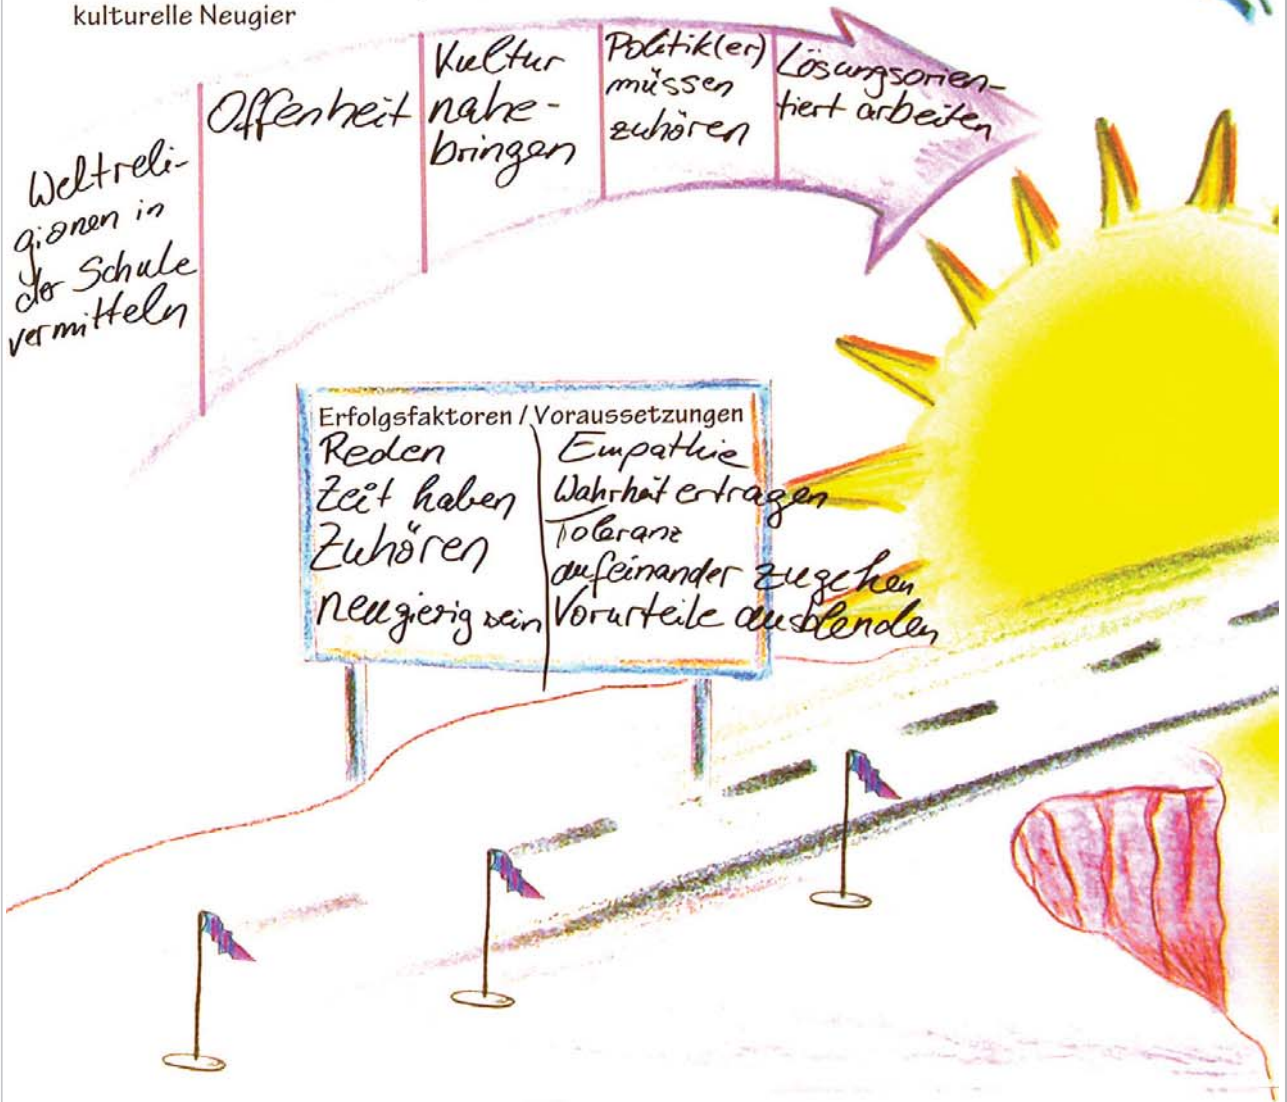 kulturelle Neugier
Weltreli-
gionen in
der Schule
vermitteln
Offenheit
Kultur
nahe-
bringen
Politik(er)
müssen
zuhören
Lösungsorien-
tiert arbeiten
Erfolgsfaktoren / Voraussetzungen
Reden
Zeit haben
Zuhören
neugierig sein
Empathie
Wahrheit ertragen
Toleranz
aufeinander zugehen
Vorurteile ausblenden